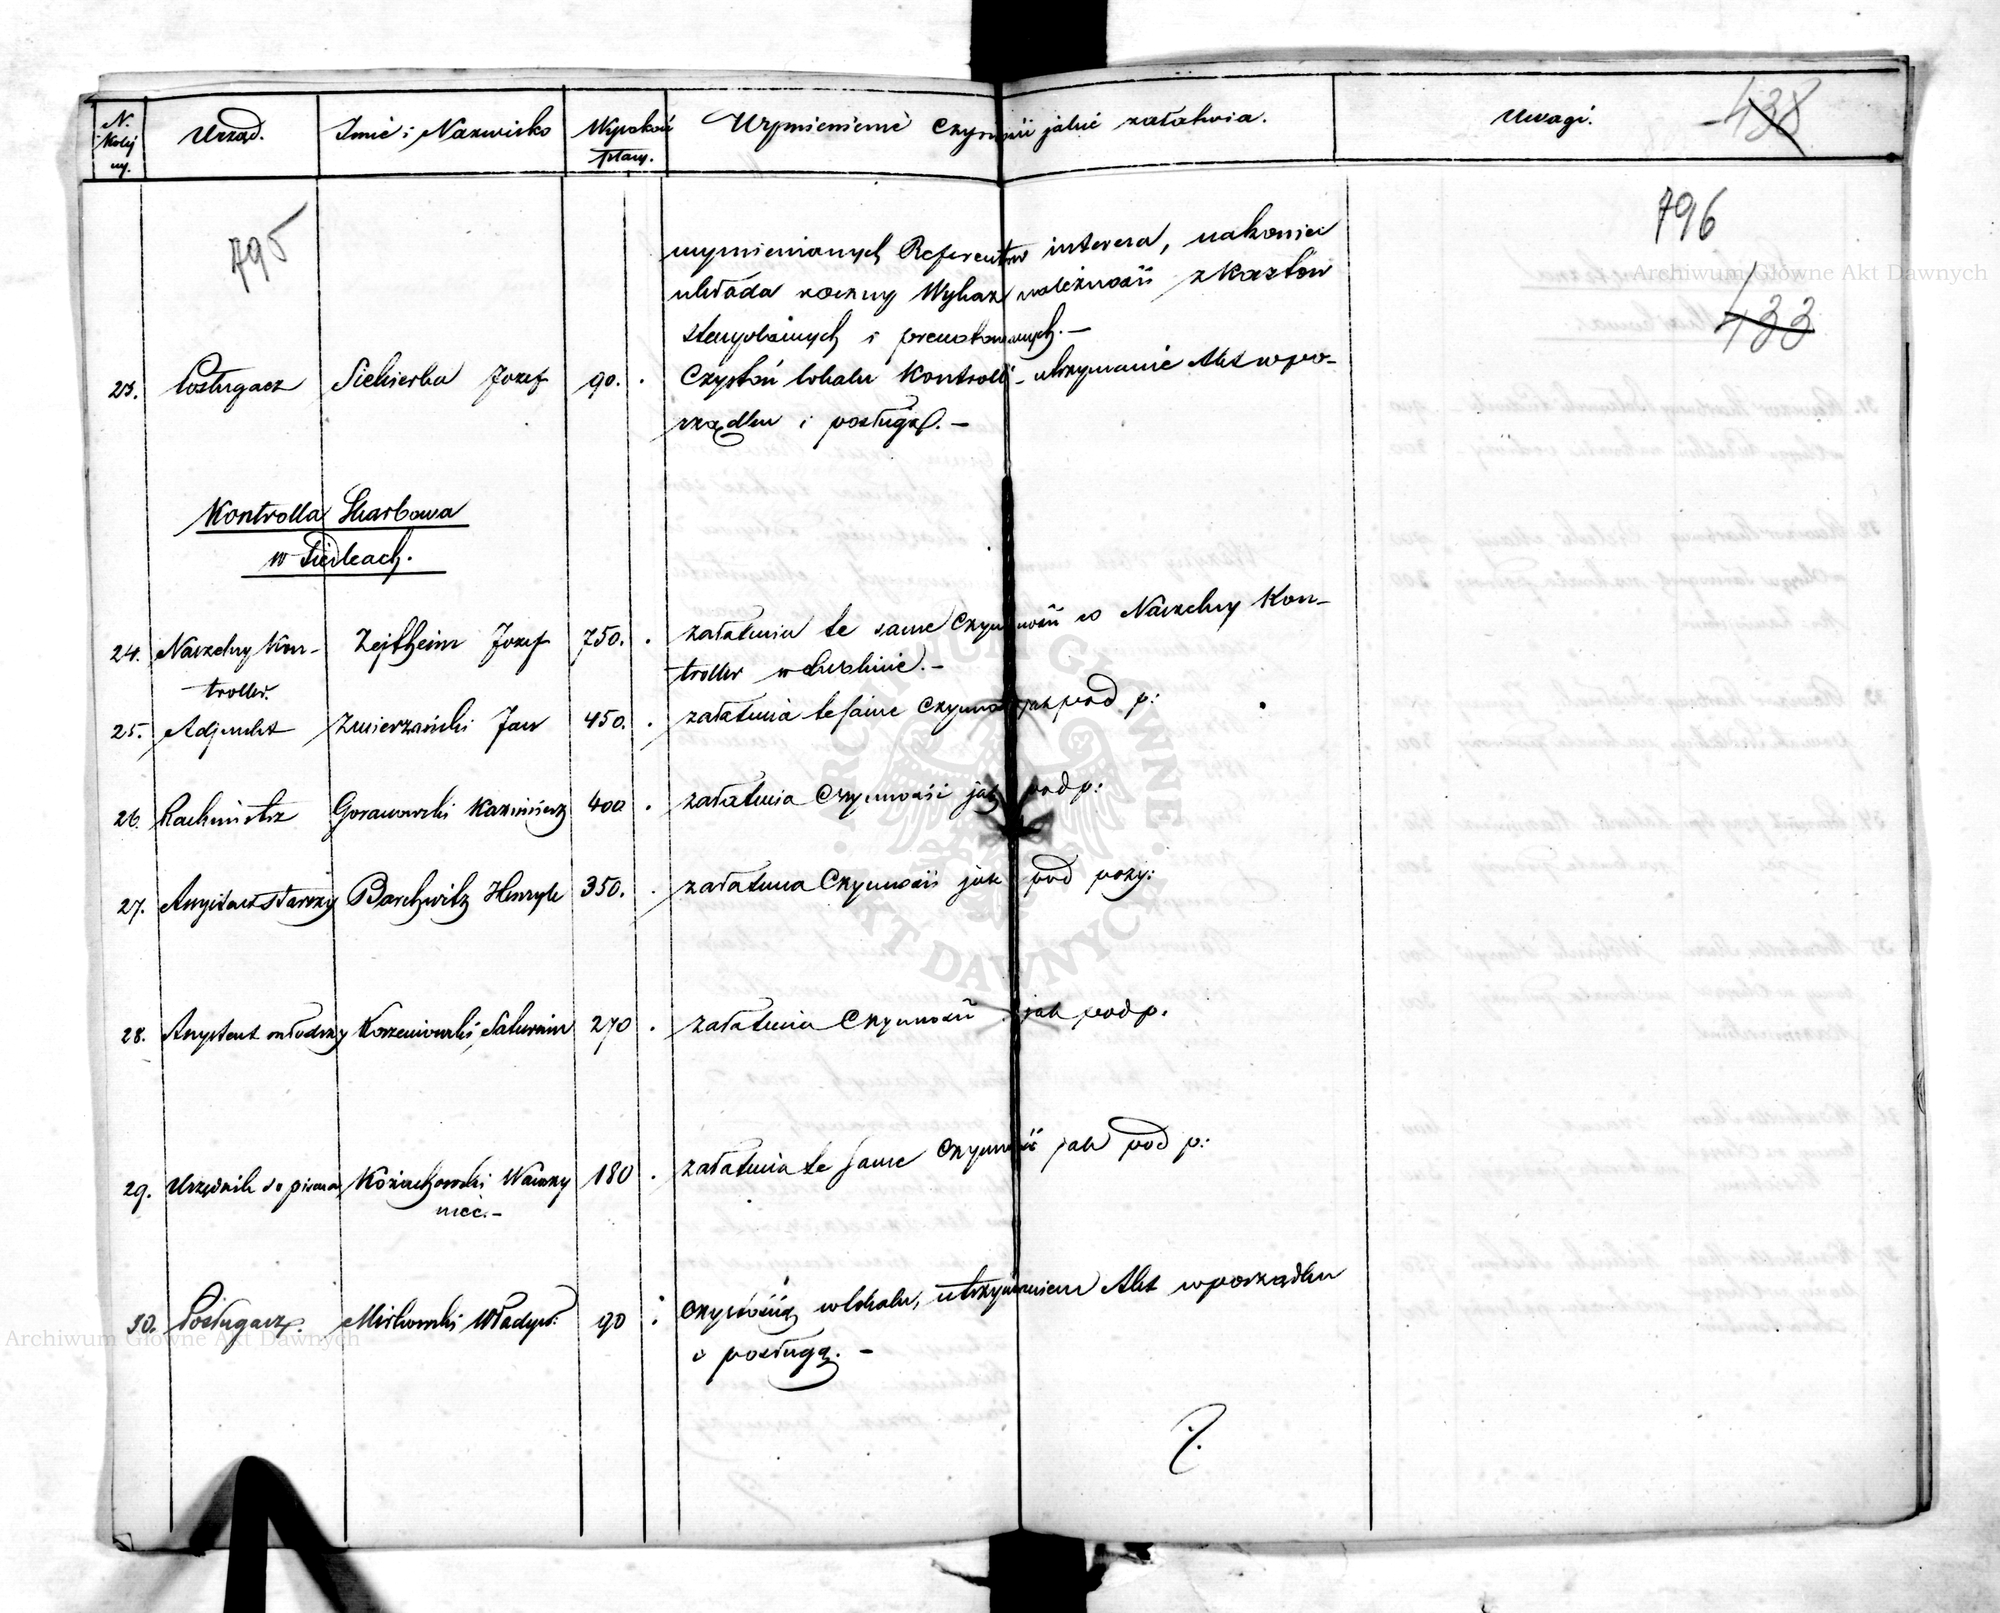 N. Kolej ny.
Urząd.
Imie i Nazwisko
Wysokość płacy.
Wymienienie Czynności jakie załatwia.
Uwagi.
438
795
796
433
wymienionych Referentów interesa, nakoniec
układa roczny Wykaz należności z Kosztów
stemplowych i prenotowanych. –
23. Posługacz Siekierka Jozef 90. Czystość lokalu Kontroli – utrzymanie Akt w po-
rządku i posługę. –
Kontrolla Skarbowa
w Siedlcach.
24. Naczelny Kon- Zejtheim Jozef 750. załatwia te same Czynności co Naczelny Kon-
troller. troller w Lublinie. –
25. Adjunkt Zwierzański Jan 450. załatwia te same Czynności jak pod p:
26. Rachmistrz Goranowski Kazimierz 400 załatwia Czynności jak pod p:
27. Assystent starszy Barchwitz Henryk 350. załatwia Czynności jak pod pozy:
28. Assystent młodszy Korzeniowski Saturnin 270 załatwia Czynności jak pod p.
29. Urzędnik do pisania Kożuchowski Wawrzy 180 załatwia te same Czynności jak pod p:
niec. –
30. Posługacz. Mirkowski Władysł: 90 czystością w lokalu, utrzymaniem Akt w porządku
i posługą. –
Archiwum Główne Akt Dawnych
Archiwum Główne Akt Dawnych
ARCHIWUM GŁÓWNE AKT DAWNYCH